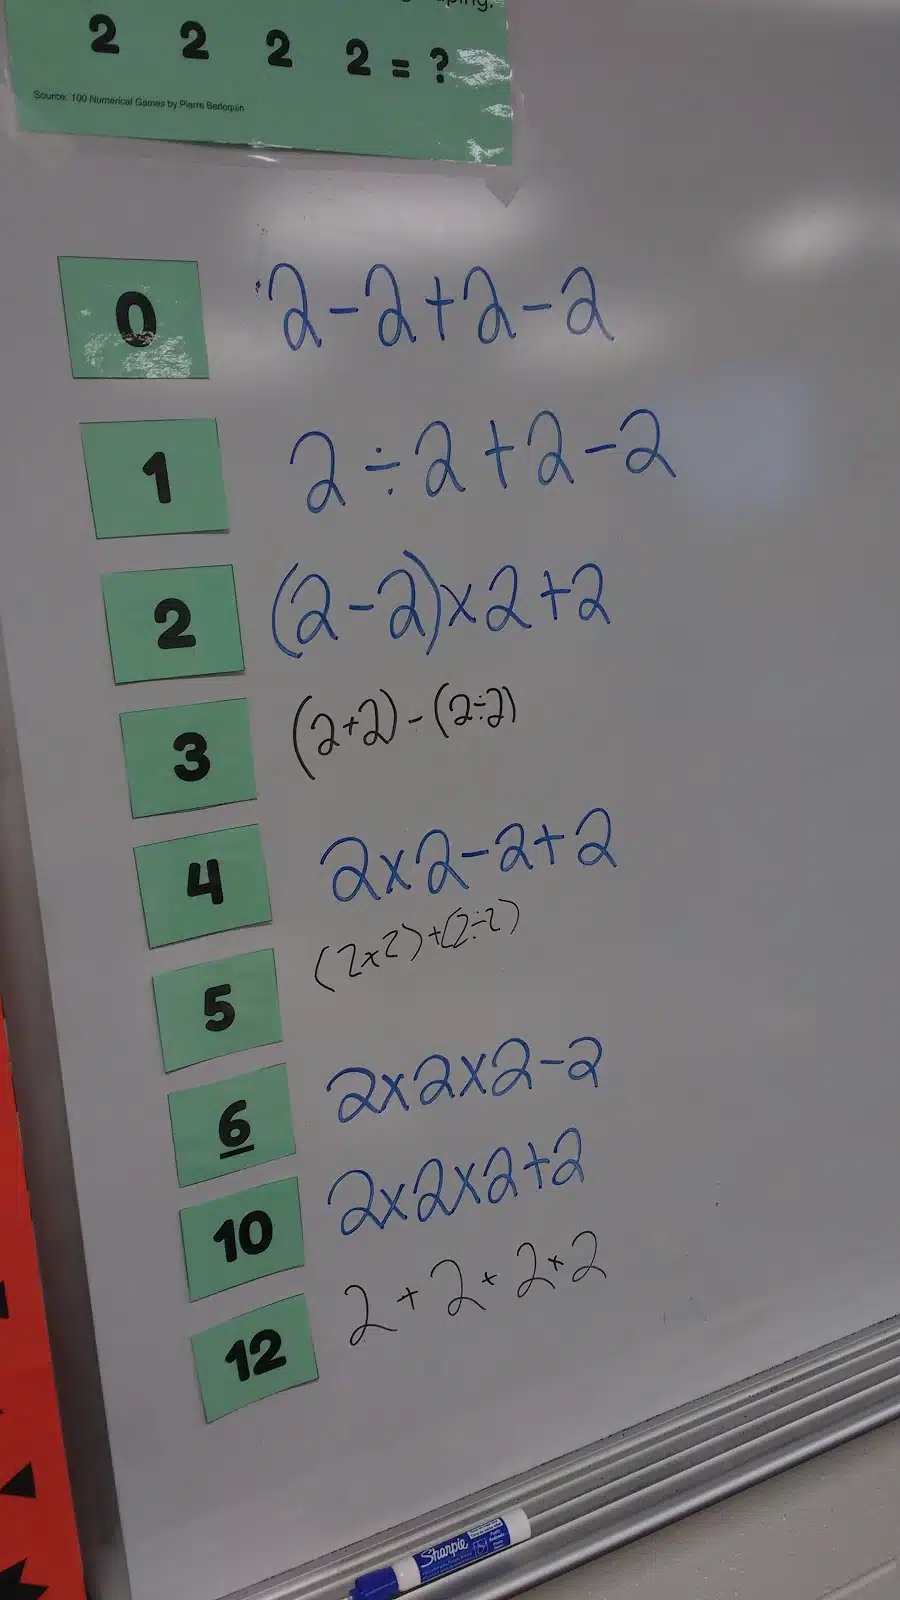 2 2 2 2 = ?
Source: 100 Numerical Games by Pierre Berloquin
0 2-2+2-2
1 2÷2+2-2
2 (2-2)×2+2
3 (2+2)-(2÷2)
4 2×2-2+2
5 (2×2)+(2÷2)
6 2×2×2-2
10 2×2×2+2
12 2+2+2×2
Sharpie